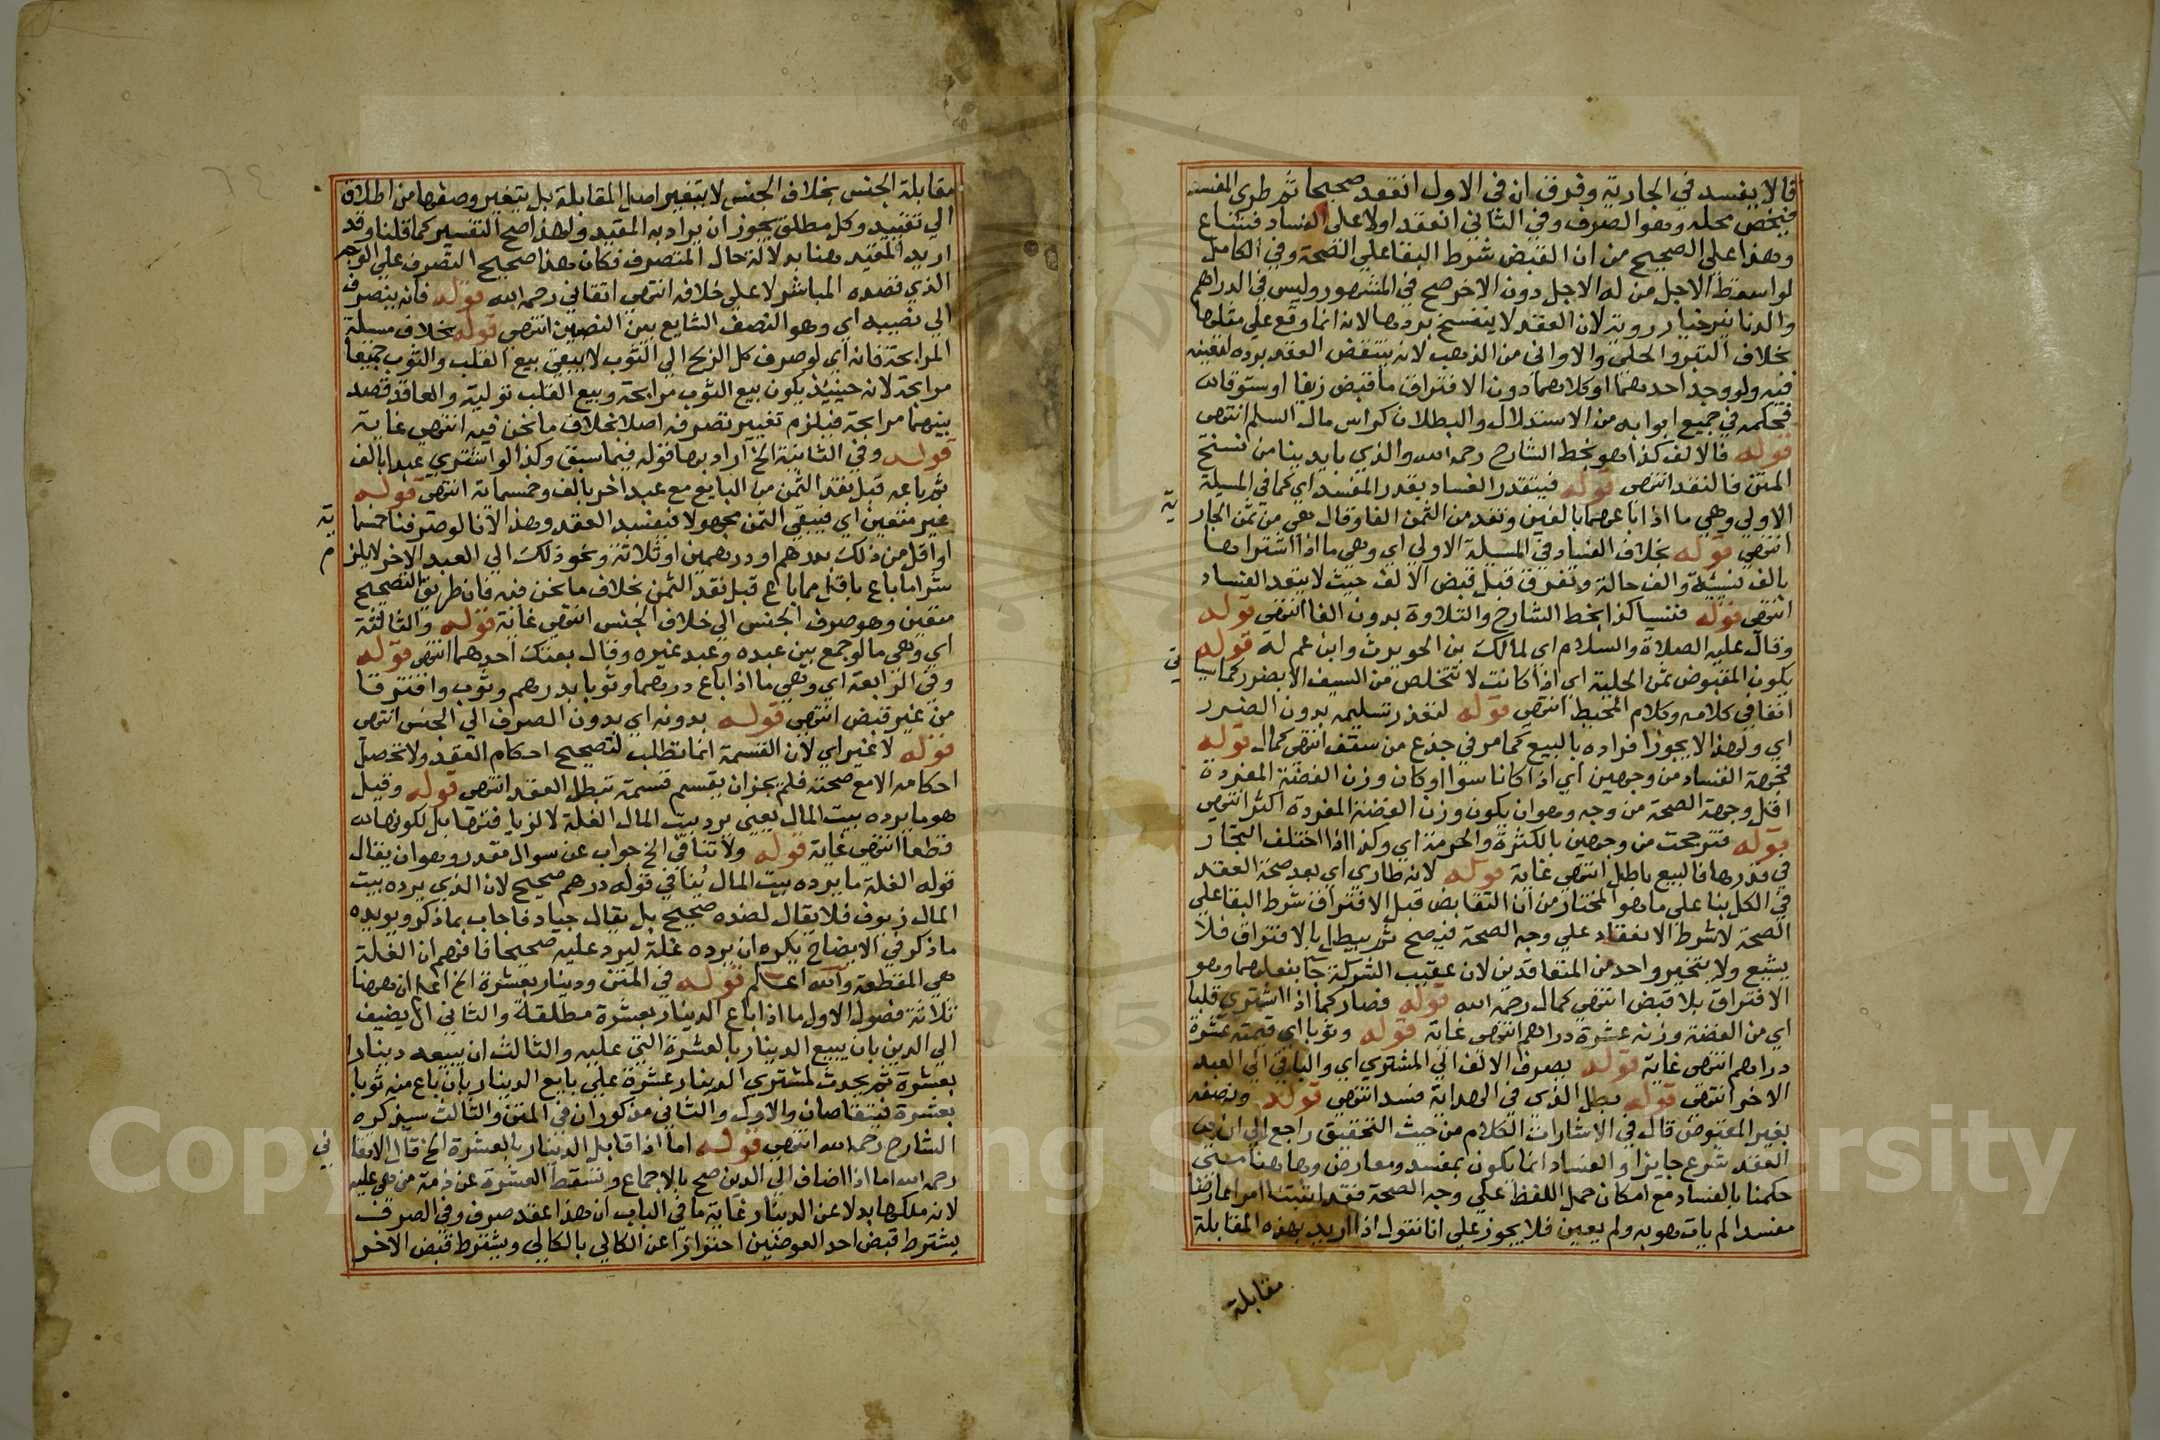 قالا يفسد في الجارية وفرق ان في الاول انعقد صحيحا ثم طرى المفسد
فيخص محله وهو الصرف وفي الثاني انعقد اولا على الفساد فشاع
وهذا على الصحيح من ان القبض شرط البقا على الصحة وفي الكامل
لو اسقط الاجل من له الاجل دون الاخر صح في المشهور وليس في الدراهم
والدنانير خيار روية لان العقد لا ينفسخ بردها لانه انما وقع على مثلها
بخلاف التبر والحلي والاواني من الذهب لانه ينتقض العقد برده لتعينه
فيه ولو وجد احدهما او كلاهما دون الافتراق ما قبض زيفا او ستوقا
فحكمه في جميع ابوابه من الاستدلال والبطلان كراس مال السلم انتهى
قوله قالا لف كذا هو بخط الشارح رحمه الله والذي بايدينا من نسخ
المتن فالنقد انتهى قوله فيتقدر الفساد بقدر المفسد اي كما في المسيلة
الاولى وهي ما اذا باعهما بالفين ونقد من الثمن الفا وقال هي من ثمن الجار
ية
انتهى قوله بخلاف الفساد في المسيلة الاولى اي وهي ما اذا اشتراها
بالف نسيئة والف حالة وتفرق قبل قبض الالف حيث لا يتعد الفساد
انتهى قوله فنسيا كذا بخط الشارح والتلاوة بدون الفا انتهى قوله
وقال عليه الصلاة والسلام اي لمالك بن الحويرث وابن عم له قوله
يكون المقبوض ثمن الحلية اي اذا كانت لا تتخلص من السيف الا بضرر كما سيا
تي
انفا في كلامه وكلام المحيط انتهى قوله لتعذر تسليمه بدون الضرر
اي ولهذا لا يجوز افراده بالبيع كما مر في جذع من سقف انتهى كمال قوله
فجهة الفساد من وجهين اي اذا كانا سوا او كان وزن الفضة المفردة
اقل وجهة الصحة من وجه وهو ان يكون وزن الفضة المفردة اكثر انتهى
قوله فترجحت من وجهين بالكثرة والحرمة اي وكذا اذا اختلف التجار
في قدرها فالبيع باطل انتهى غاية قوله لانه طارى اي بعد صحة العقد
في الكل بنا على ما هو المختار من ان التقابض قبل الافتراق شرط البقا على
الصحة لا شرط الانعقاد على وجه الصحة فيصح ثم يبطل بالافتراق فلا
يشيع ولا يتخير واحد من المتعاقدين لان عيب الشركة جا بفعلهما وهو
الافتراق بلا قبض انتهى كمال رحمه الله قوله فصار كما اذا اشترى قلبا
اي من الفضة وزنه عشرة دراهم انتهى غاية قوله وثوبا اي قيمته عشرة
دراهم انتهى غاية قوله بصرف الالف الى المشتري اي والباقي الى العبد
الاخر انتهى قوله بطل الذي في الهداية فسد انتهى قوله ونصفه
بغير المقبوض قال في الاشارات الكلام من حيث التحقيق راجع الى ان
العقد شرع جايزا والفساد انما يكون بمفسد ومعارض وهاهنا متى
حكمنا بالفساد مع امكان حمل اللفظ على وجه الصحة فقد اثبتنا امرا عارضا
مفسدا لم يات هو به ولم يعين فلا يجوز على انا نقول اذا اريد بهذه المقابلة
مقابلة
مقابلة الجنس بخلاف الجنس لا يتغير اصل المقابلة بل يتغير وصفها من اطلاق
الى تقييد وكل مطلق يجوز ان يراد به المقيد ولهذا صح التفسير كما قلنا وقد
اريد المقيد هنا بدلالة حال المتصرف فكان هذا صحيح التصرف على الوجه
الذي قصده المباشر لا على خلافه انتهى اتقاني رحمه الله قوله فانه ينصرف
الى نصيبه اي وهو النصف الشايع بين النصين انتهى قوله بخلاف مسيلة
المرابحة فانه اي لو صرف كل الربح الى الثوب لا يبقى بيع القلب والثوب جميعا
مرابحة لانه حينئذ يكون بيع الثوب مرابحة وبيع القلب تولية والعاقد قصد
بيعهما مرابحة فيلزم تغيير تصرفه اصلا بخلاف ما نحن فيه انتهى غاية
قوله وفي الثانية الخ اراد بها قوله فيما سبق وكذا لو اشترى عبدا بالف
ثم باعه قبل نقد الثمن من البايع مع عبد اخر بالف وخمسماية انتهى قوله
غير متعين اي فيبقى الثمن مجهولا فيفسد العقد وهذا لانا لو صرفنا خمسما
ية
او اقل من ذلك بدرهم او درهمين او ثلاثة ونحو ذلك الى العبد الاخر لا يلز
م
شرا ما باع باقل مما باع قبل نقد الثمن بخلاف ما نحن فيه فان طريق التصحيح
متعين وهو صرف الجنس الى خلاف الجنس انتهى غاية قوله والثالثة
اي وهي ما لو جمع بين عبده وعبد غيره وقال بعتك احدهما انتهى قوله
وفي الرابعة اي وهي ما اذا باع درهما وثوبا بدرهم وثوب وافترقا
من غير قبض انتهى قوله بدونه اي بدون الصرف الى الجنس انتهى
قوله لا غير اي لان القسمة انما تطلب لتصحيح احكام العقد ولا تحصل
احكامه الا مع صحته فلم يجز ان يقسم قسمة تبطل العقد انتهى قوله وقيل
هو ما يرده بيت المال يعني يرد بيت المال الغلة لا لزيا فتها بل لكونها
قطعا انتهى غاية قوله ولا تنافي الخ جواب عن سوال مقدر وهو ان يقال
قوله الغلة ما يرده بيت المال ينافي قوله درهم صحيح لان الذي يرده بيت
المال زيوف فلا يقال لضده صحيح بل يقال جياد فاجاب بما ذكر ويويده
ما ذكر في الايضاح يكره ان يرده غلة ليرد عليه صحيحا فافهم ان الغلة
هي المقطعة والله اعلم قوله في المتن ودينار بعشرة الخ اعلم ان هاهنا
ثلاثة فصول الاول ما اذا باع الدينار بعشرة مطلقة والثاني ان يضيف
الى الدين بان يبيع الدينار بالعشرة التي عليه والثالث ان يبيعه دينارا
بعشرة ثم يحدث لمشتري الدينار عشرة على بايع الدينار بان باع منه ثوبا
بعشرة فيتقاصان والاول والثاني مذكوران في المتن والثالث سيذكره
الشارح رحمه الله انتهى قوله اما اذا قابل الدينار بالعشرة الخ قال الاتقا
ني
رحمه الله اما اذا اضاف الى الدين صح بالاجماع وتسقط العشرة عن ذمة من هي عليه
لانه ملكها بدلا عن الدينار غاية ما في الباب ان هذا عقد صرف وفي الصرف
يشترط قبض احد العوضين احترازا عن الكالي بالكالي ويشترط قبض الاخر